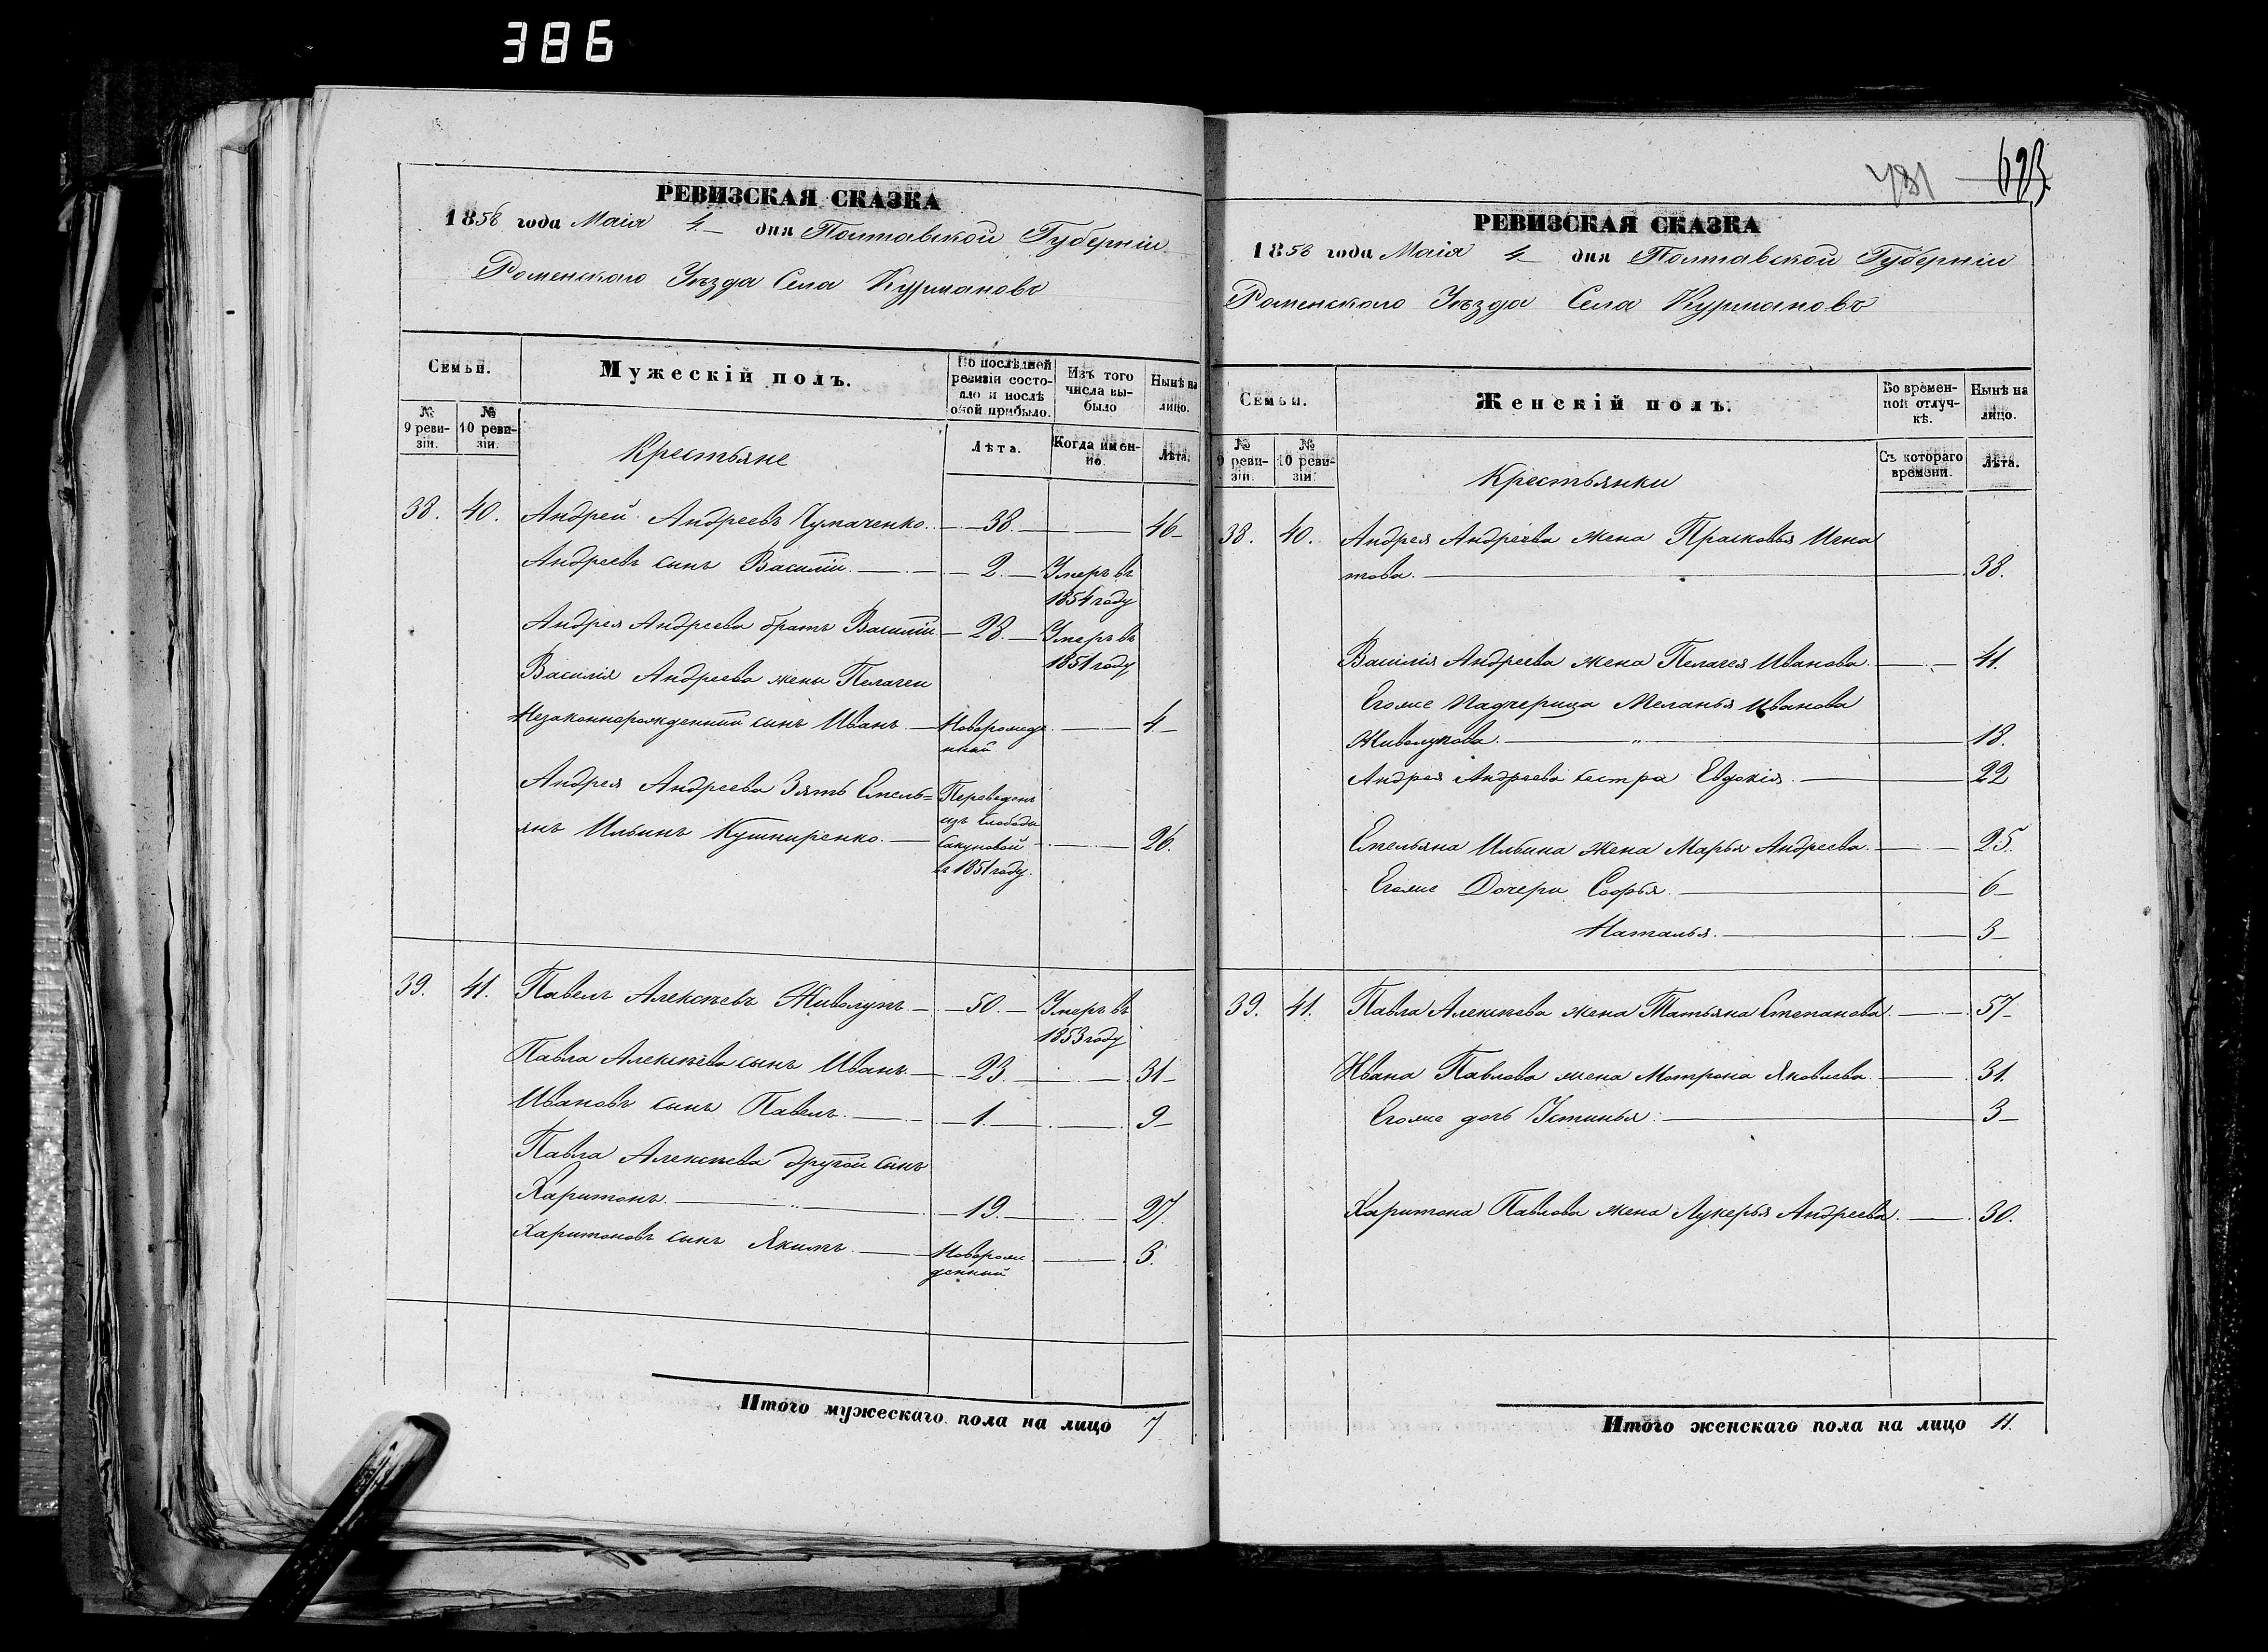 386
РЕВИЗСКАЯ СКАЗКА
1858 года Маія 4 дня Полтавской Губерніи
Роменского Уѣзда Села Курмановъ
Семьи.
Мужескій полъ.
По послѣдней ревизіи состояло и послѣ оной прибыло.
Изъ того числа выбыло
Нынѣ на лицо.
№ 9 ревизіи.
№ 10 ревизіи.
Крестьяне
Лѣта.
Когда именно.
Лѣта.
38. 40. Андрей Андреевъ Чупаченко. 38. 46
Андреевъ сынъ Василій. 2. Умеръ въ
1854 году
Андрея Андреева братъ Василій 28. Умеръ въ
1851 году
Василія Андреева жены Пелагеи
Незаконнорожденный сынъ Иванъ Новорожде
нный 4
Андрея Андреева Зять Емель=
янъ Ильинъ Кушниренко. 26.
Переведенъ
изъ слободы
Сакуновой
въ 1851 году.
39. 41. Павелъ Алексѣевъ Живолупъ 50. Умеръ въ
1853 году
Павла Алексѣева сынъ Иванъ. 23. 31
Ивановъ сынъ Павелъ. 1. 9
Павла Алексѣева другой сынъ
Харитонъ. 19. 27.
Харитоновъ сынъ Якимъ. Новорож
денный 3.
Итого мужескаго пола на лицо 7
781 693.
РЕВИЗСКАЯ СКАЗКА
1858 года Маія 4 дня Полтавской Губерніи
Роменского Уѣзда Села Курмановъ
Семьи.
Женскій полъ.
Во временной отлучкѣ.
Нынѣ на лицо.
№ 9 ревизіи.
№ 10 ревизіи.
Крестьянки
Съ котораго времени.
Лѣта.
38. 40. Андрея Андреева жена Прасковья Игна
това. 38.
Василія Андреева жена Пелагея Иванова. 41.
Егоже Падчерица Меланья Иванова
Живолупова. 18.
Андрея Андреева сестра Евдокія. 22
Емельяна Ильина жена Марья Андреева. 25.
Егоже Дочери Софья. 6
Наталья. 3
39. 41. Павла Алексѣева жена Татьяна Степанова. 57
Ивана Павлова жена Мотрона Яковлева. 31.
Егоже дочь Устинья. 3
Харитона Павлова жена Лукерья Андреева. 30.
Итого женскаго пола на лицо 11.